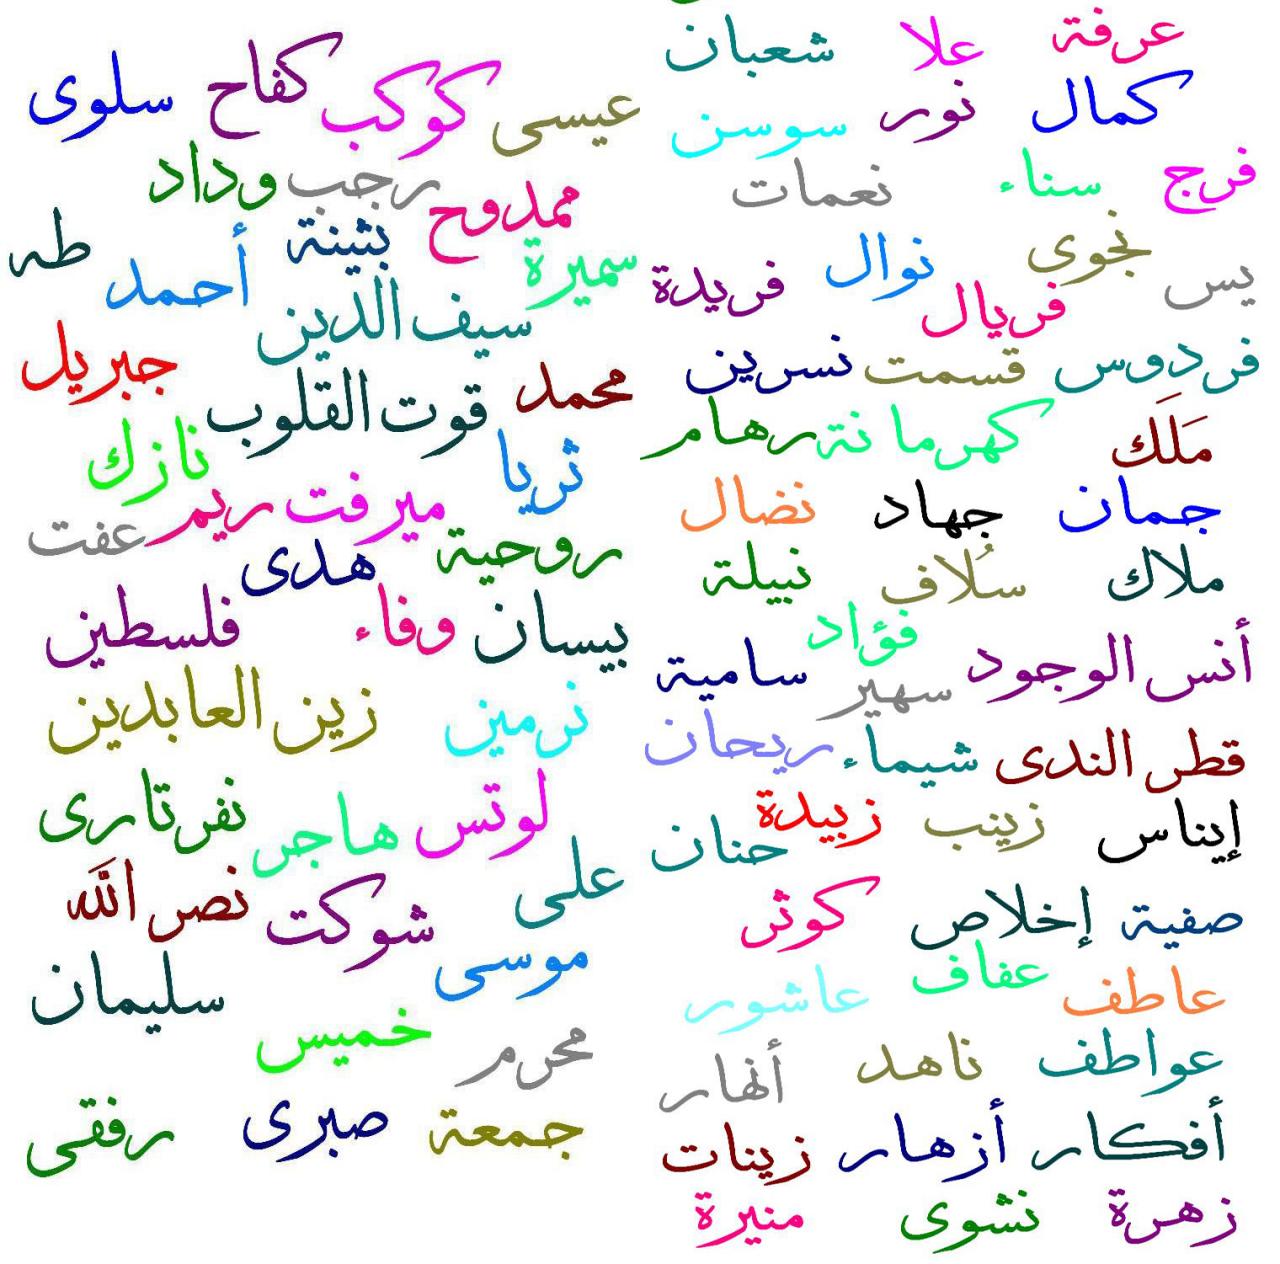 عرفة علا شعبان
كمال نور سوسن
فرج سناء نعمات
نجوى نوال
يس فريال فريدة
فردوس قسمت نسرين
مَلَك كهرمانة رهام
جمان جهاد نضال
ملاك سُلاف نبيلة
فؤاد
أنس الوجود سهير سامية
قطر الندى شيماء ريحان
إيناس زينب زبيدة حنان
صفية إخلاص كوثر
عاطف عفاف عاشور
عواطف ناهد أنهار
أفكار أزهار زينات
زهرة نشوى منيرة
عيسى كوكب كفاح سلوى
ممدوح رجب وداد
سميرة بثينة أحمد طه
سيف الدين
محمد قوت القلوب جبريل
ثريا نازك
ميرفت ريم عفت
روحية هدى
بيسان وفاء فلسطين
نرمين زين العابدين
لوتس هاجر نفرتارى
على شوكت نصر الله
موسى سليمان
محرم خميس
جمعة صبرى رفقى